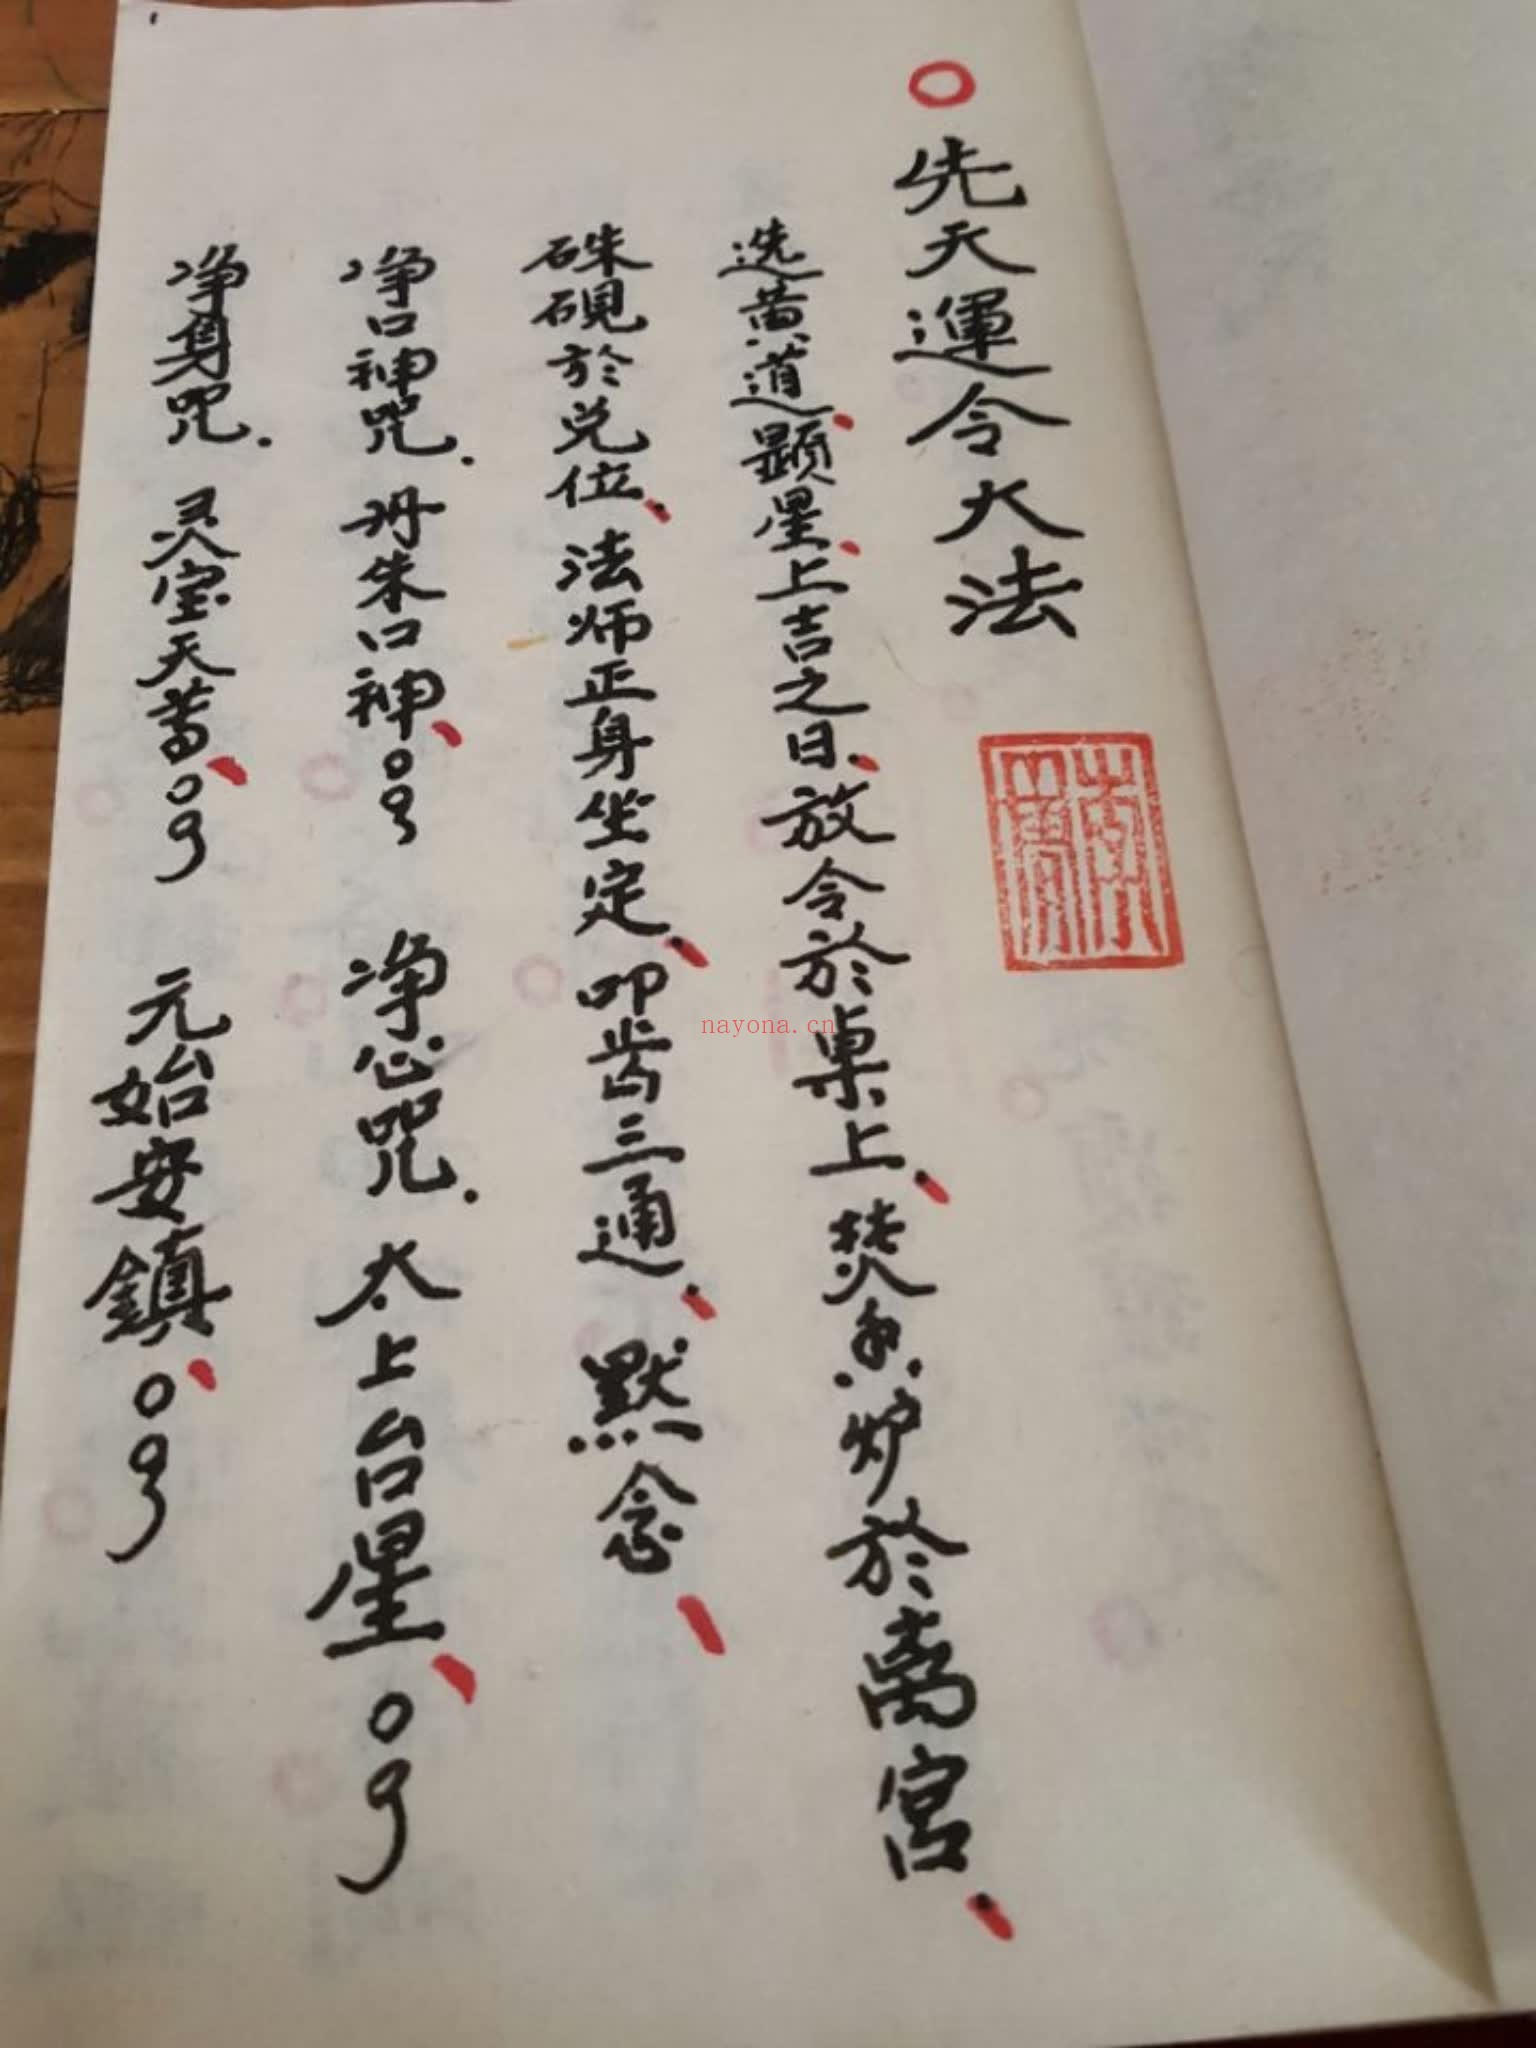 先天運令大法
选黄道顕星上吉之日放令於桌上焚香炉於离宫
硃硯於兑位法师正身坐定叩齿三通默念
净口神咒.丹朱口神
净心咒.太上台星
净身咒.灵宝天尊 元始安鎮
nayona.cn